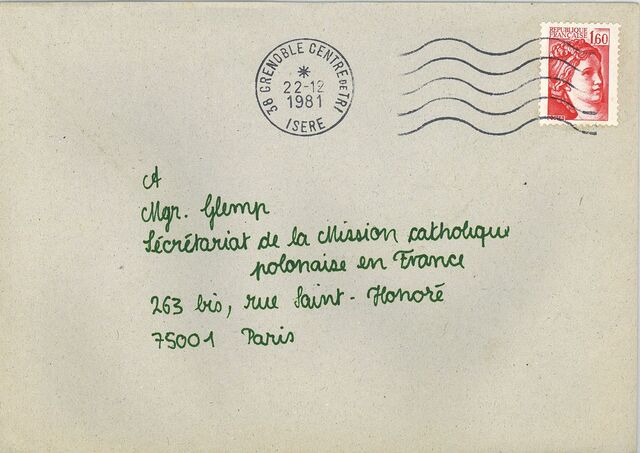 REPUBLIQUE
FRANÇAISE
1,60
38 GRENOBLE CENTRE DE TRI
22-12
1981
ISERE
A
Mgr. Glemp
Sécrétariat de la Mission catholique
polonaise en France
263 bis, rue Saint-Honoré
75001 Paris